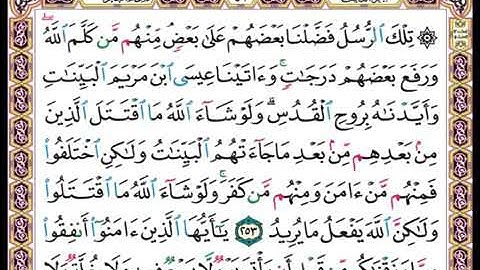 ۞ تِلْكَ ٱلرُّسُلُ فَضَّلْنَا بَعْضَهُمْ عَلَىٰ بَعْضٍ مِّنْهُم مَّن كَلَّمَ ٱللَّهُ
وَرَفَعَ بَعْضَهُمْ دَرَجَٰتٍ وَءَاتَيْنَا عِيسَى ٱبْنَ مَرْيَمَ ٱلْبَيِّنَٰتِ
وَأَيَّدْنَٰهُ بِرُوحِ ٱلْقُدُسِ ۗ وَلَوْ شَآءَ ٱللَّهُ مَا ٱقْتَتَلَ ٱلَّذِينَ
مِنۢ بَعْدِهِم مِّنۢ بَعْدِ مَا جَآءَتْهُمُ ٱلْبَيِّنَٰتُ وَلَٰكِنِ ٱخْتَلَفُوا۟
فَمِنْهُم مَّنْ ءَامَنَ وَمِنْهُم مَّن كَفَرَ ۚ وَلَوْ شَآءَ ٱللَّهُ مَا ٱقْتَتَلُوا۟
وَلَٰكِنَّ ٱللَّهَ يَفْعَلُ مَا يُرِيدُ ۝٢٥٣ يَٰٓأَيُّهَا ٱلَّذِينَ ءَامَنُوٓا۟ أَنفِقُوا۟